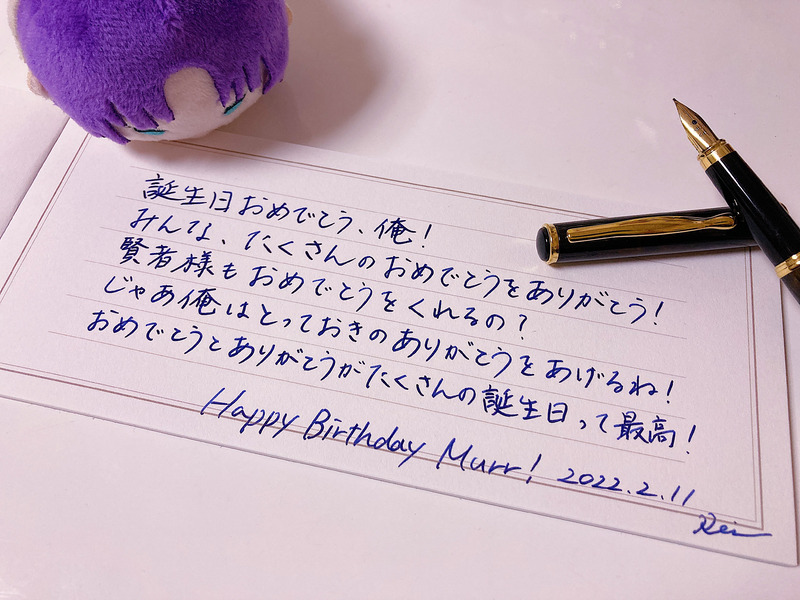 誕生日おめでとう、俺!
みんな、たくさんのおめでとうをありがとう!
賢者様もおめでとうをくれるの?
じゃあ俺はとっておきのありがとうをあげるね!
おめでとうとありがとうがたくさんの誕生日って最高!
Happy Birthday Murr! 2022.2.11
Rei